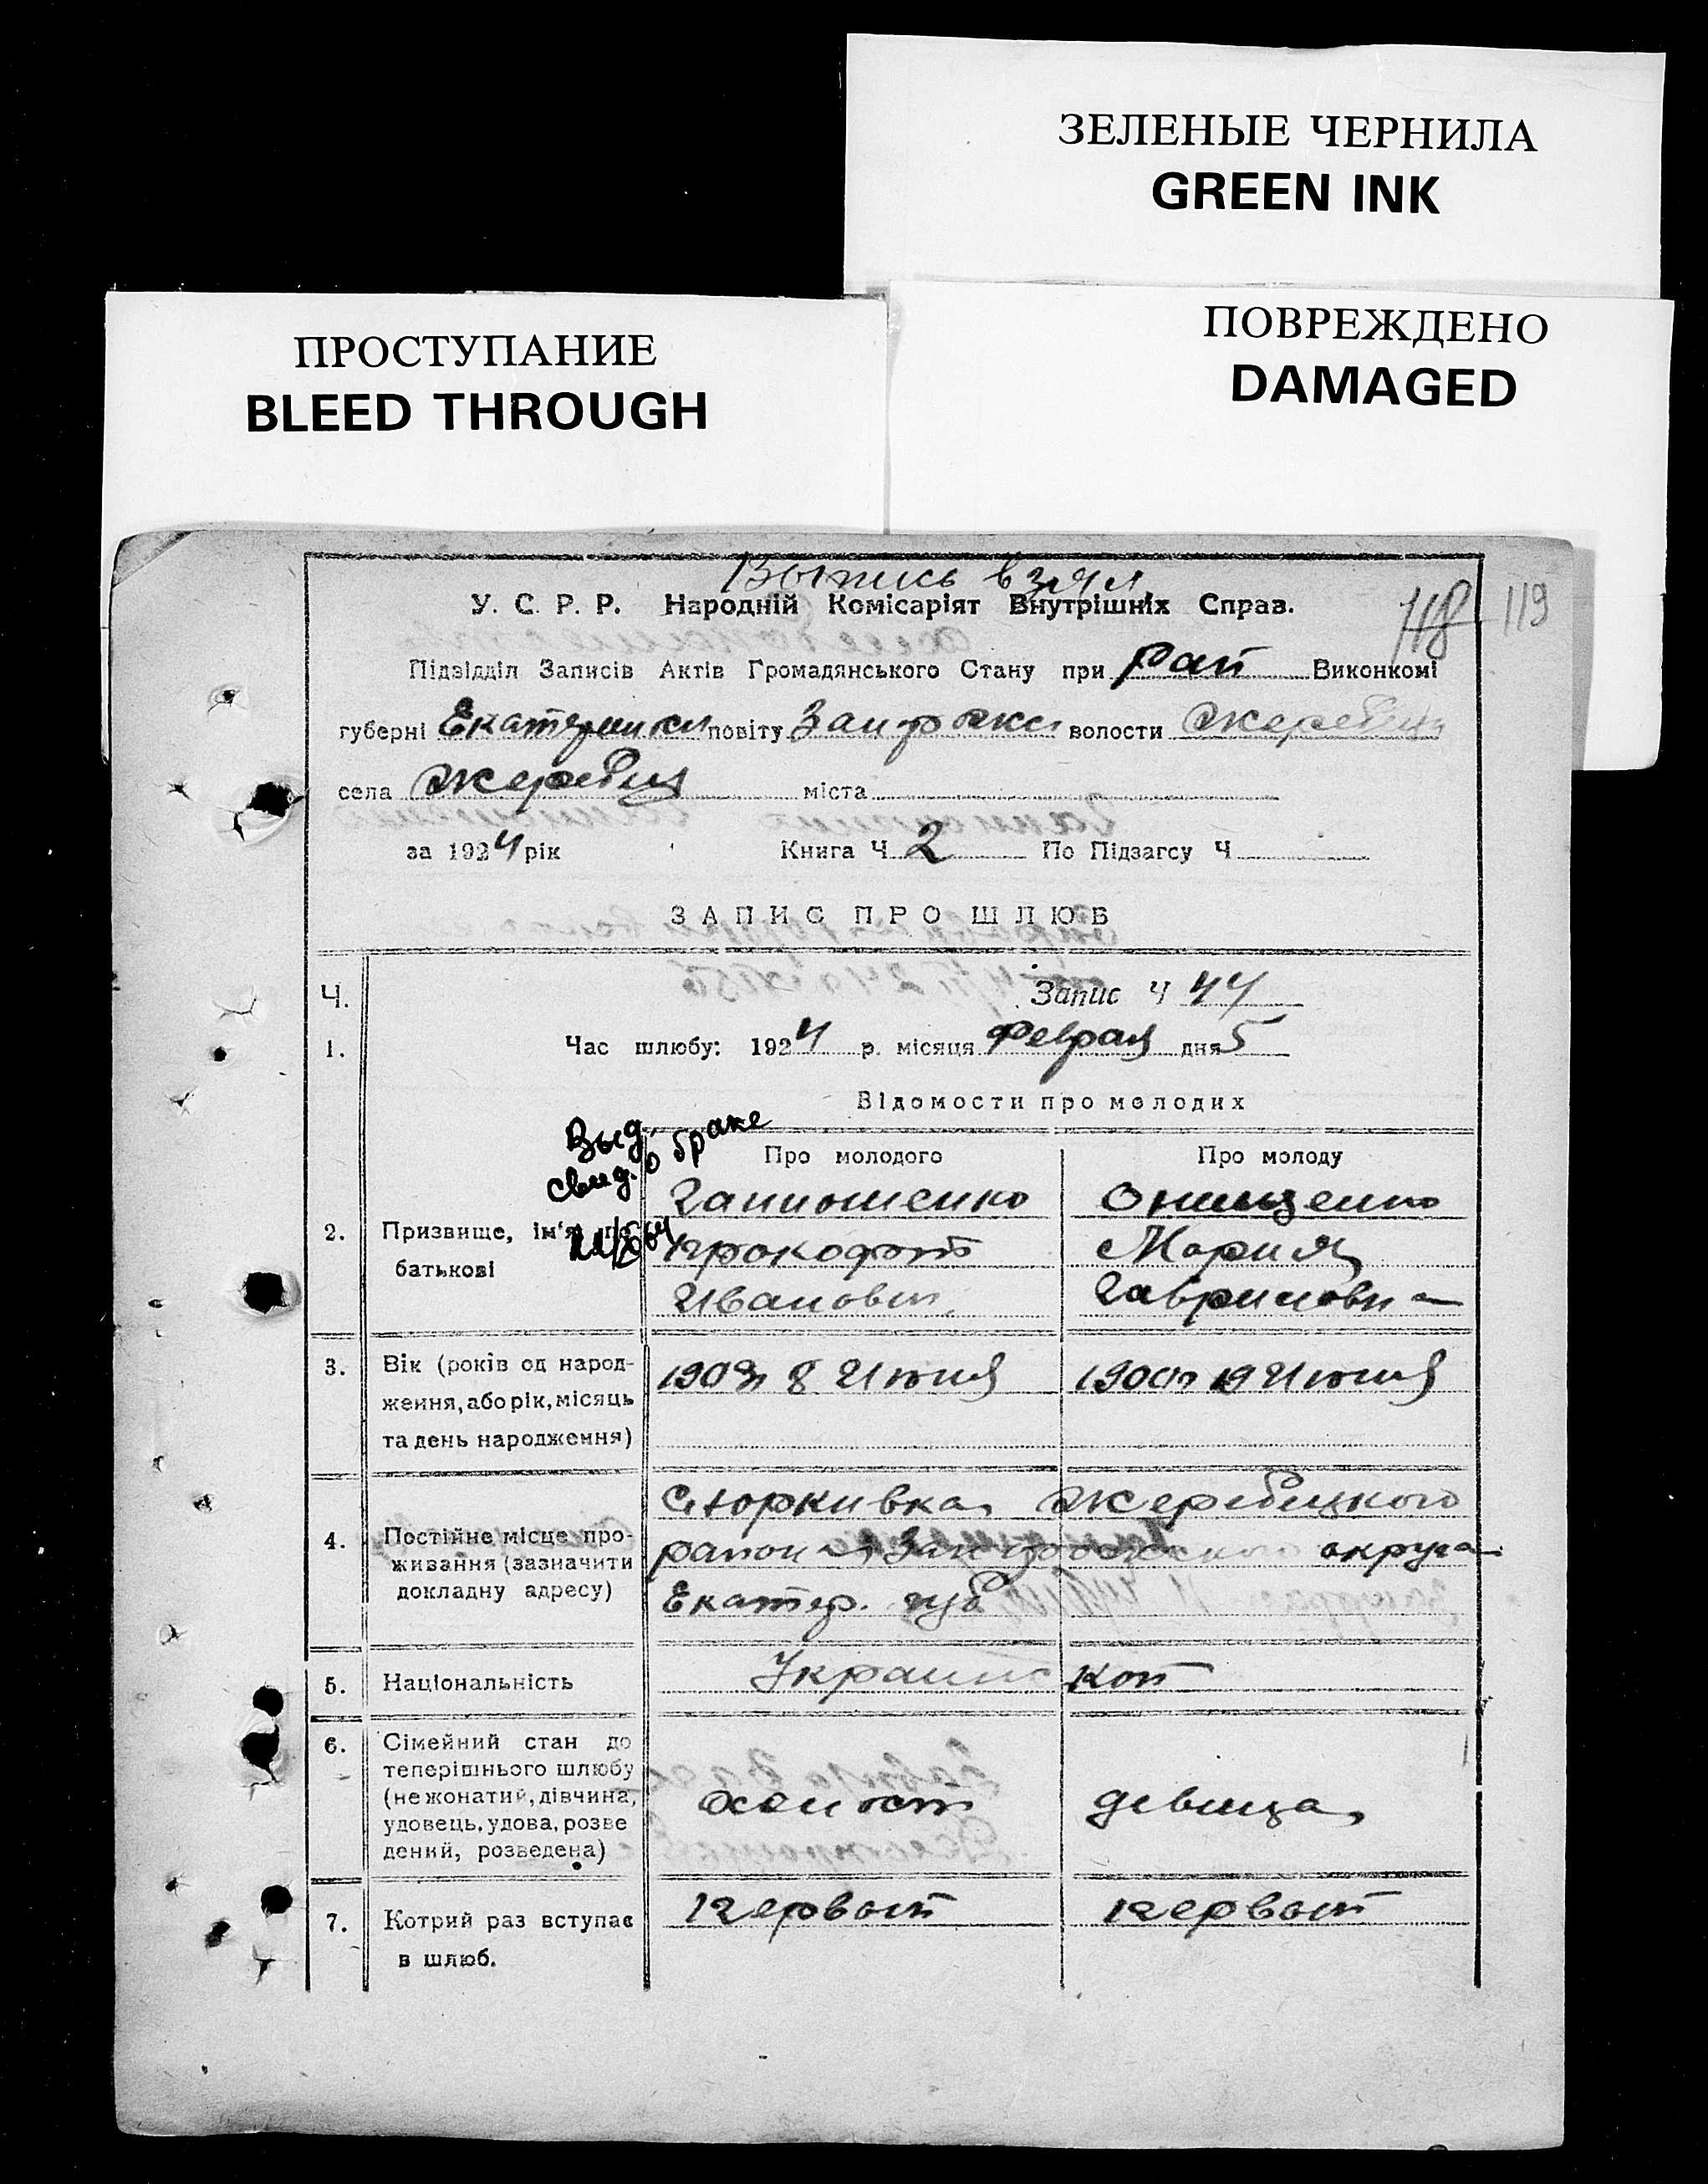 ЗЕЛЕНЫЕ ЧЕРНИЛА
GREEN INK
ПРОСТУПАНИЕ
BLEED THROUGH
ПОВРЕЖДЕНО
DAMAGED
Выпись взял
У. С. Р. Р. Народній Комісаріят Внутрішніх Справ.
118 119
Підвідділ Записів Актів Громадянського Стану при Рай Виконкомі
губерні повіту волости
села Жеребец міста
за 1924 рік Книга Ч 2 По Підзагсу Ч
ЗАПИС ПРО ШЛЮБ
Ч. Запис Ч 44
1. Час шлюбу: 1924 р. місяця Февраля дня 5
Відомости про молодих
Выд. свид. о браке
Про молодого Про молоду
Онищенко
2. Призвище, ім'я, по Прокофий Мария
батькові Иванович Гавриловна
3. Вік (років од народ-
ження, або рік, місяць
та день народження)
1903 8 Июня 1900 19 Июня
4. Постійне місце про-
живання (зазначити
докладну адресу)
Жеребецкого
района Запорожского округа
Екатер. губ
5. Національність Украинской
6. Сімейний стан до
теперішнього шлюбу
(не жонатий, дівчина,
удовець, удова, розве
дений, розведена)
холост девица
7. Котрий раз вступає
в шлюб.
Первый Первый